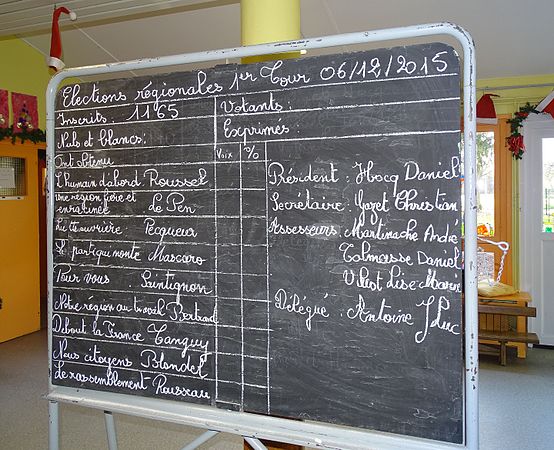 Elections régionales 1er Tour 06/12/2015
Inscrits : 1165
Votants :
Nuls et blancs :
Exprimés :
Ont obtenu
Voix
%
L'humain d'abord Roussel
Une région fière et
enracinée Le Pen
Lutte ouvrière Pecqueur
Le parti qui monte Mascaro
Pour vous Saintignon
Notre région au travail Bertrand
Debout la France Tanguy
Nous citoyens Blondel
Le rassemblement Rousseau
Président : Hocq Daniel
Secrétaire : Gozet Christian
Assesseurs : Martinache André
Talmasse Daniel
Lise Marie
Délégué : Antoine J Luc